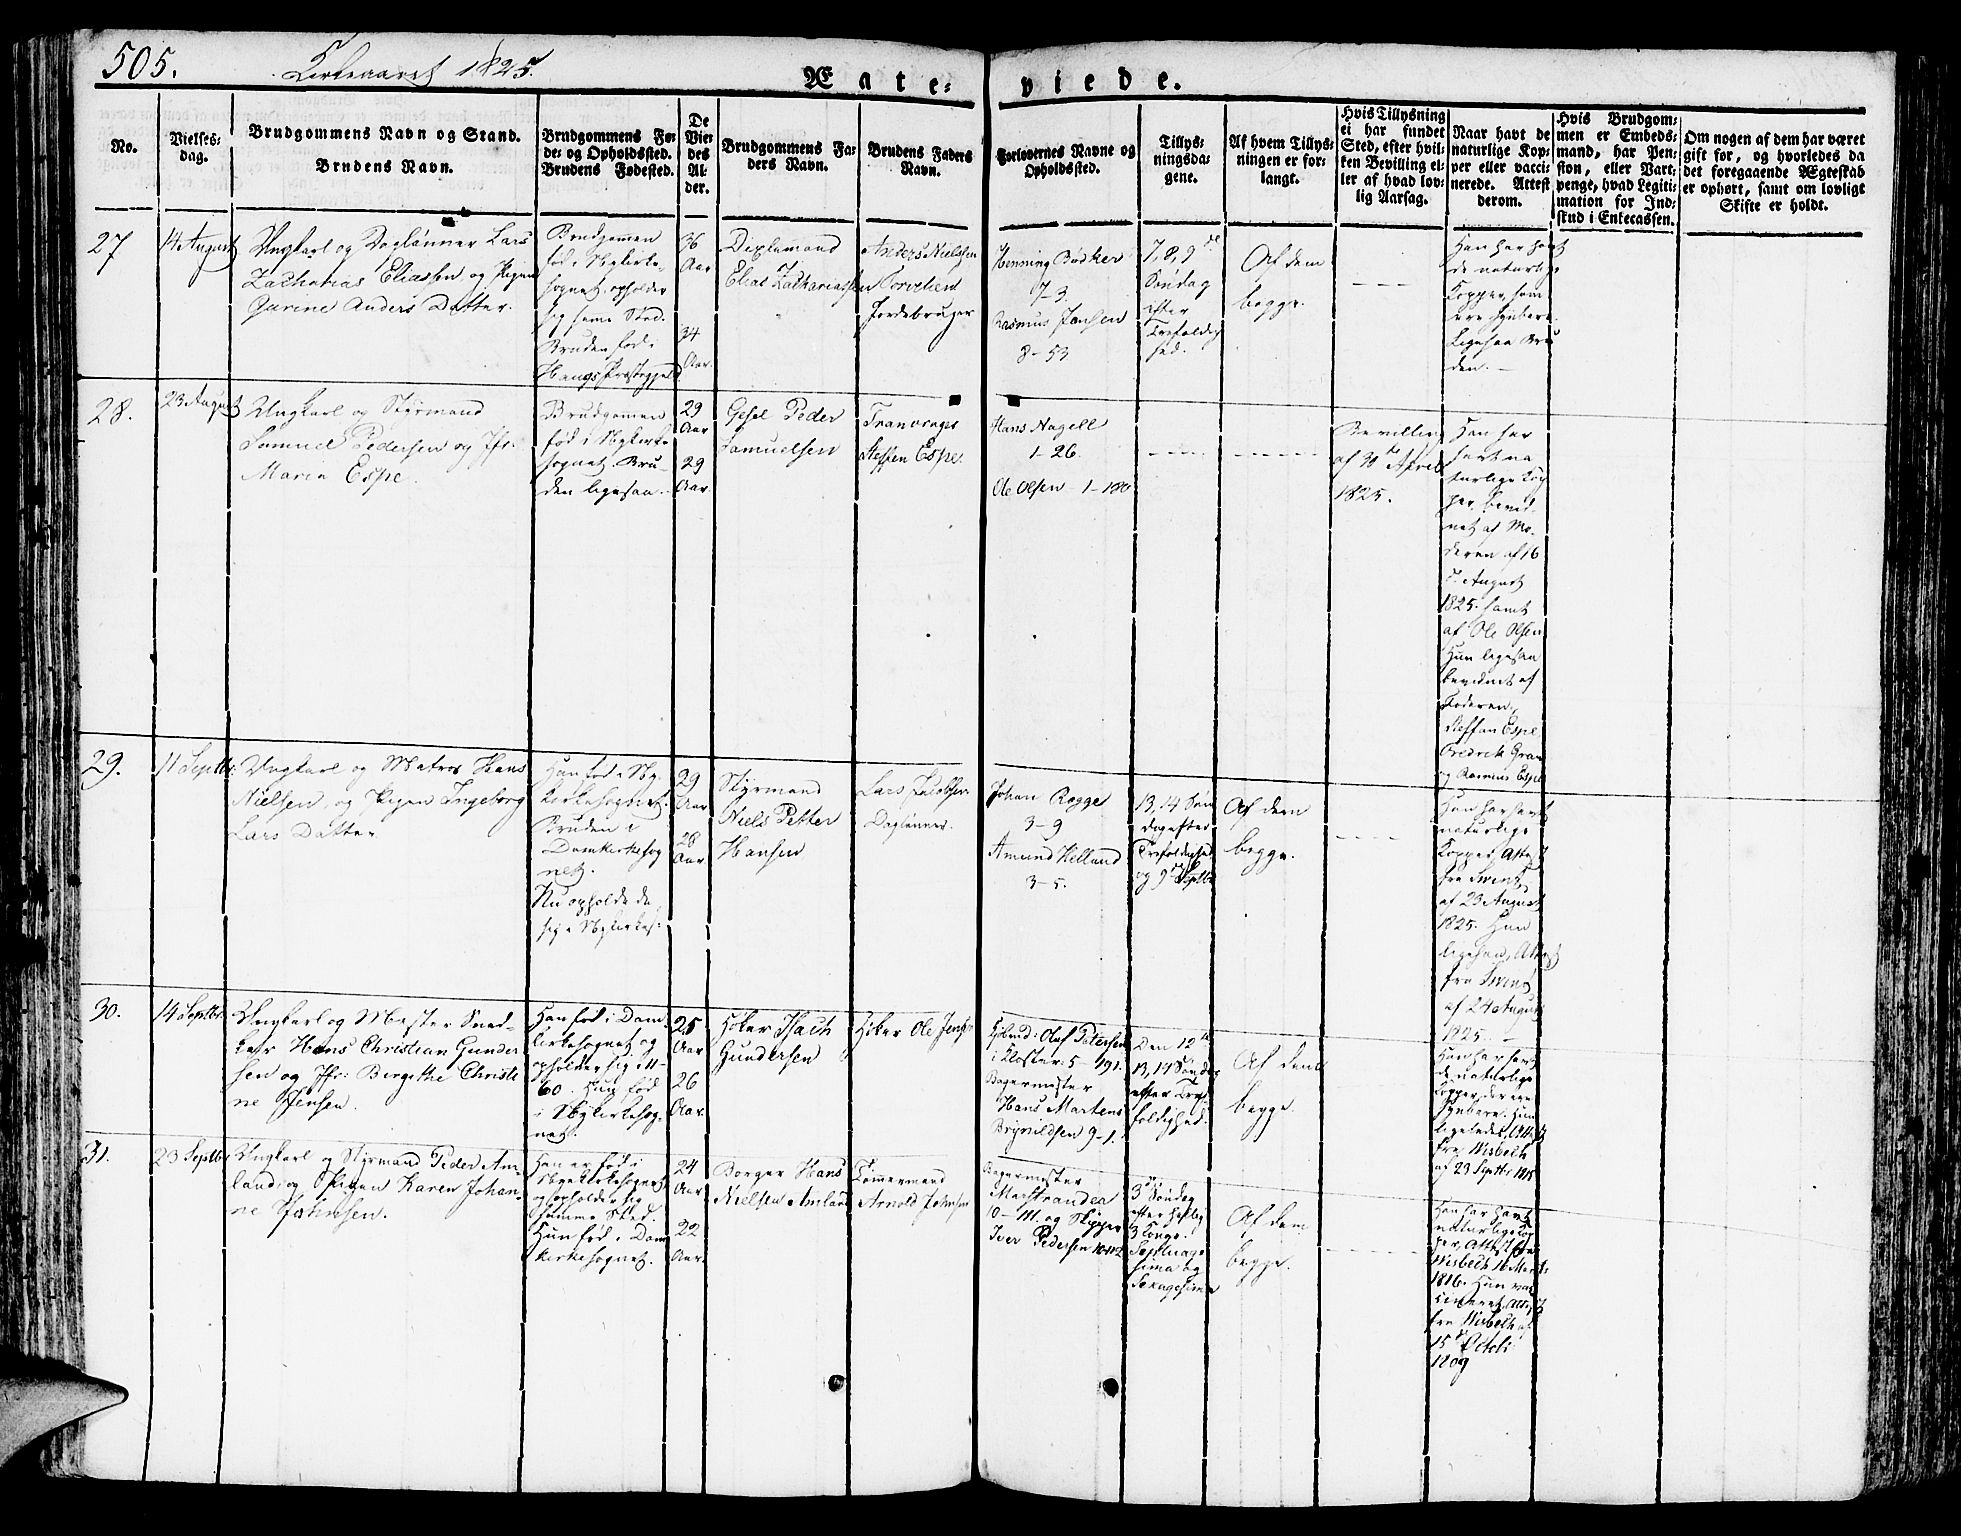 505. Kirkeaaret 1825.
Ægte- viede.
No.
Vielses-
dag.
Brudgommens Navn og Stand.
Brudens Navn.
Brudgommens Fø-
de- og Opholdssted.
Brudens Fødested.
De
Vier
des
Al-
der.
Brudgommens Fa-
ders Navn.
Brudens Faders
Navn.
Forlovernes Navne og
Opholdssted.
Tillys-
ningsda-
gene.
Af hvem Tillys-
ningen er for-
langt.
Hvis Tillysning
ei har fundet
Sted, efter hvil-
ken Bevilling el-
ler af hvad lov-
lig Aarsag.
Naar havt de
naturlige Kop-
per eller vacci-
nerede. Attest
derom.
Hvis Brudgom-
men er Embeds-
mand, har Pen-
sion, eller Vart-
penge, hvad Legiti-
mation for Ind-
skud i Enkecassen.
Om nogen af dem har været
gift før, og hvorledes da
det foregaaende Ægteskab
er ophørt, samt om lovligt
Skifte er holdt.
27
14 August
Ungkarl og Daglønner Lars
Zacharias Eliassen og Pigen
Gurine Anders Datter.
Brudgomen
fød i Nykirke-
sognet, opholder
sig samme Sted.
Bruden fød i
Haugs Præstegjeld
36
Aar
34
Aar.
Elias Zachariassen
Anders Nielsen
Jordebruger
Henning Bødker
7-3.
Rasmus Jansen
8-53
7, 8, 9de
Søndag
efter
Trefoldig
hed.
Af dem
begge.
Han har havt
de naturlige
Kopper, som
ere synbare.
Ligesaa Bru
den.
28.
23 August
Ungkarl og Styrmand
Samuel Pedersen og Jfr.
Maren Espe.
Brudgomen
fød i Nykirke
sognet. Bru-
den ligesaa.
29
Aar
29
Aar.
Gesel Peder
Samuelsen
Tranvrager
Steffen Espe.
Hans Nagell
1-26.
Ole Olsen 1-180
Bevilling
af 30te April
1825.
Han har
havt na
turlige Kop
per, bevid-
net af Mo-
deren af 16
de August
1825. samt
af Ole Olsen
Hun ligesaa
bevidnet af
Faderen,
Steffan Espe
Fredrik Gran
og Rasmus Espe
29.
11 Septbr.
Ungkarl og Matros Hans
Nielsen, og Pigen Ingeborg
Lars Datter
Han fød i Ny-
kirkesognet.
Bruden i
Domkirkesog
net.
Nu opholde de
sig i Nykirkes:
29
Aar
28
Aar
Styrmand
Niels Petter
Hansen
Lars Jacobsen
Daglønner.
Johan Rogge
3-9
Amund Helland
3-5.
13, 14 Søn
dag efter
Trefoldighed
og 9de Septbr
Af dem
begge.
Han har havt
naturlige
Kopper, Attest
fra
af 23 August
1825. Hun
ligesaa, Attest
fra
af 24 August
1825.
30.
14 Septbr.
Ungkarl og Mester Sned-
ker Hans Christian Gunder
sen og Jfr: Birgithe Christi
ne Jensen.
Han fød i Dom-
kirkesognet og
opholder sig i 11-
60. Hun fød
i Nykirkesog-
net.
25
Aar
26
Aar.
Høker Isach
Gundersen
Høker Ole Jensen
Oluf Petersen
i Kloster: 5-191.
Bagermester
Hans Martens
Brynildsen 9-1.
Den 12te
13, 14 Søndag
efter Tre-
foldighed.
Af dem
begge.
Han har havt
de naturlige
Kopper, der ere
synbare. Hun
ligeledes, Attest
fra Wisbech
af 23 Septbr 1815
31.
23 Septbr.
Ungkarl og Styrmand Peder Am-
land og Pigen Karen Johan-
ne Johnsen.
Han er fød i
Nykirkesognet
og opholder sig
samme Sted.
Hun fød i Dom
kirkesognet.
24
Aar
22
Aar.
Borger Hans
Nielsen Amland
Tømermand
Arnold Johnsen
Bagermester
Marstrander
10-111. og Skipper
Iver Pedersen 10-112
3de Søndag
efter Hellig
3 Konge.
Septuage
sima og
Sexagesima
Af dem
begge.
Han har havt
naturlige Kop
per, Attest fra
Wisbech 16 Marts
1816. Hun vac
cineret, attest
fra Wisbech af
15de Octobr
1809